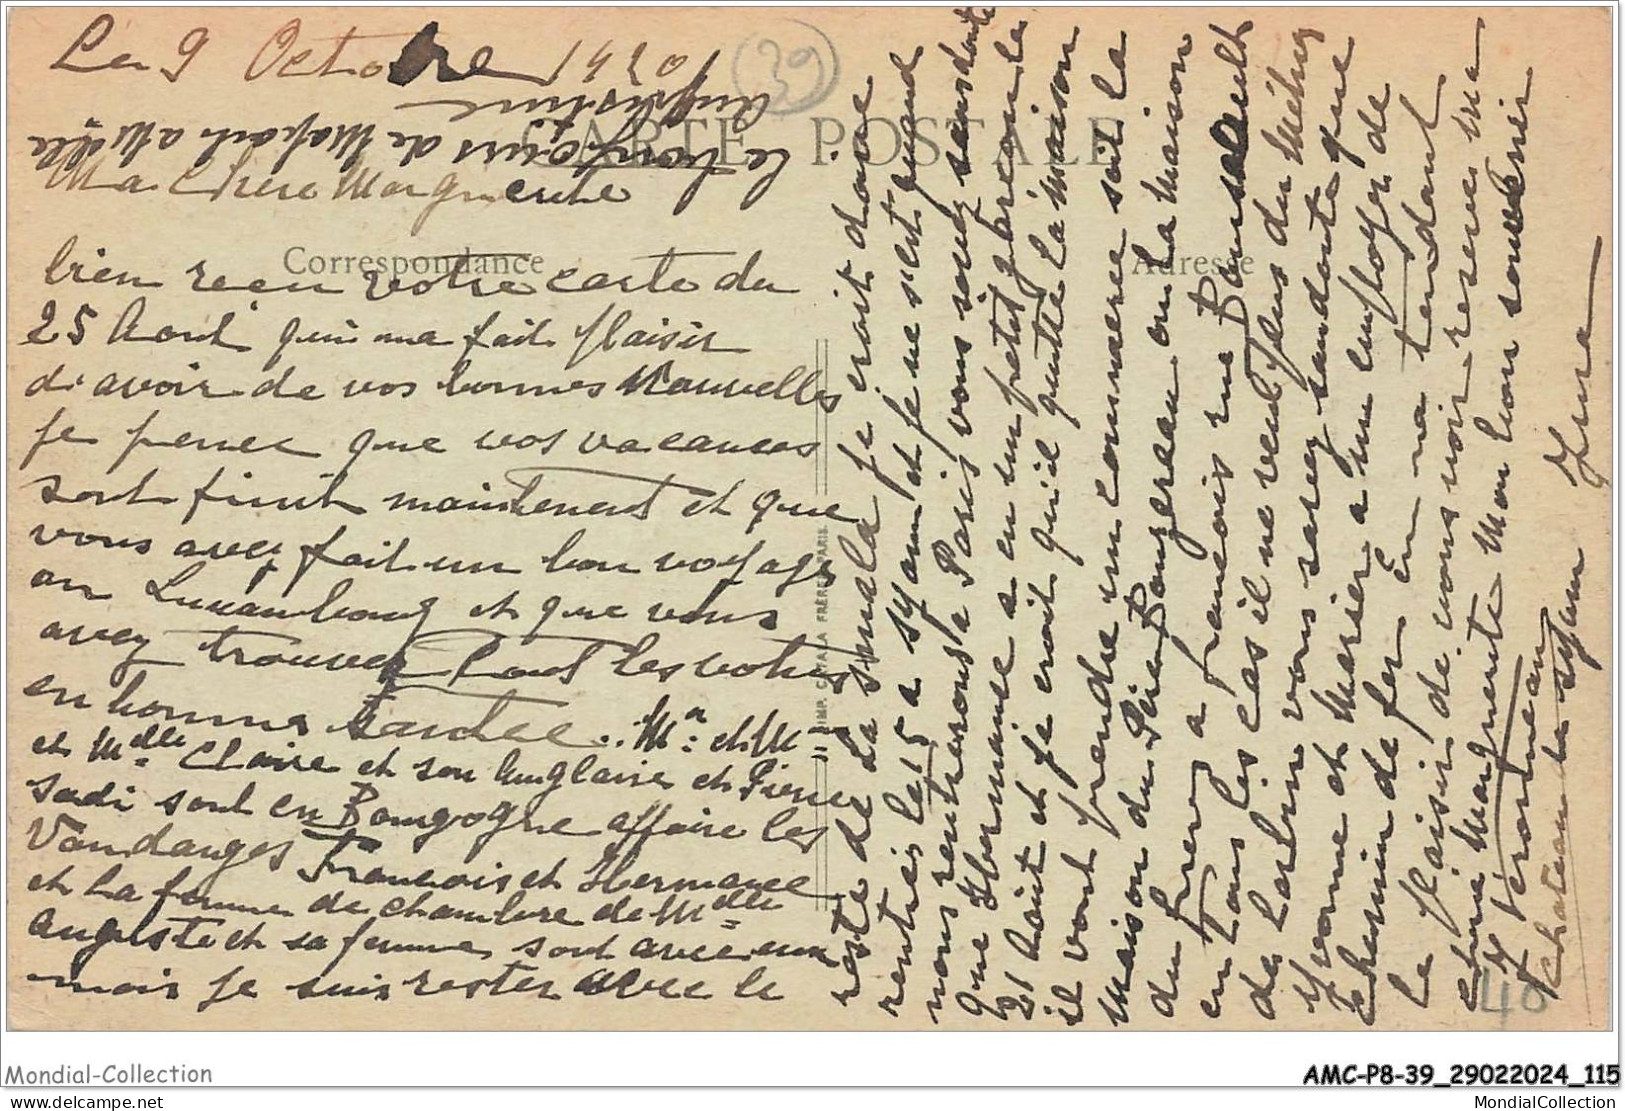 Le 9 Octobre 1920
39
CARTE POSTALE
le bonjours de ma part a Mdlle
augustine
Ma Chère Marguerite
Correspondance
Adresse
bien reçu votre carte du
25 Aout qui ma fait plaisir
d'avoir de vos bonnes Nouvelles
je pense que vos vacances
sont finit maintenent et que
vous avez fait un bon voyage
au Luxambourg et que vous
avez trouvez tout les votres
en bonne santee. Mr et Mme
et Mdlle Claire et son anglaise et Pierre
Sadi sont en Bourgogne affaire les
Vandanges Francois et Hermance
et la femme de chambre de Mdlle
auguste et sa femme sont avec eux
mois je suis rester avec le
reste de la smala je croit donc
rentrés le 15 a st et je ne s'est quand
nous rentrerons a Paris vous savez sans doute
que Hermance a eu un petit garcon le
21 Aout et je croit qu'il quitte la maison
il vont prendre un commerce soit la
maison du Père Bougereau ou la maison
du frere a Francois rue
en tous les cas il ne veul plus du Métier
de Larbin vous savez sandoute que
Yvonne et Marier a un employer de
chemin de fer En na tendant
le plaisir de vous voir resevez ma
chère Marguerite Mon bon souvenir
J Véronneau
Chateau de
Jura
40
IMP. CATALA FRERES PARIS
Mondial-Collection
AMC-P8-39_29022024_115
delcampe.net
MondialCollection